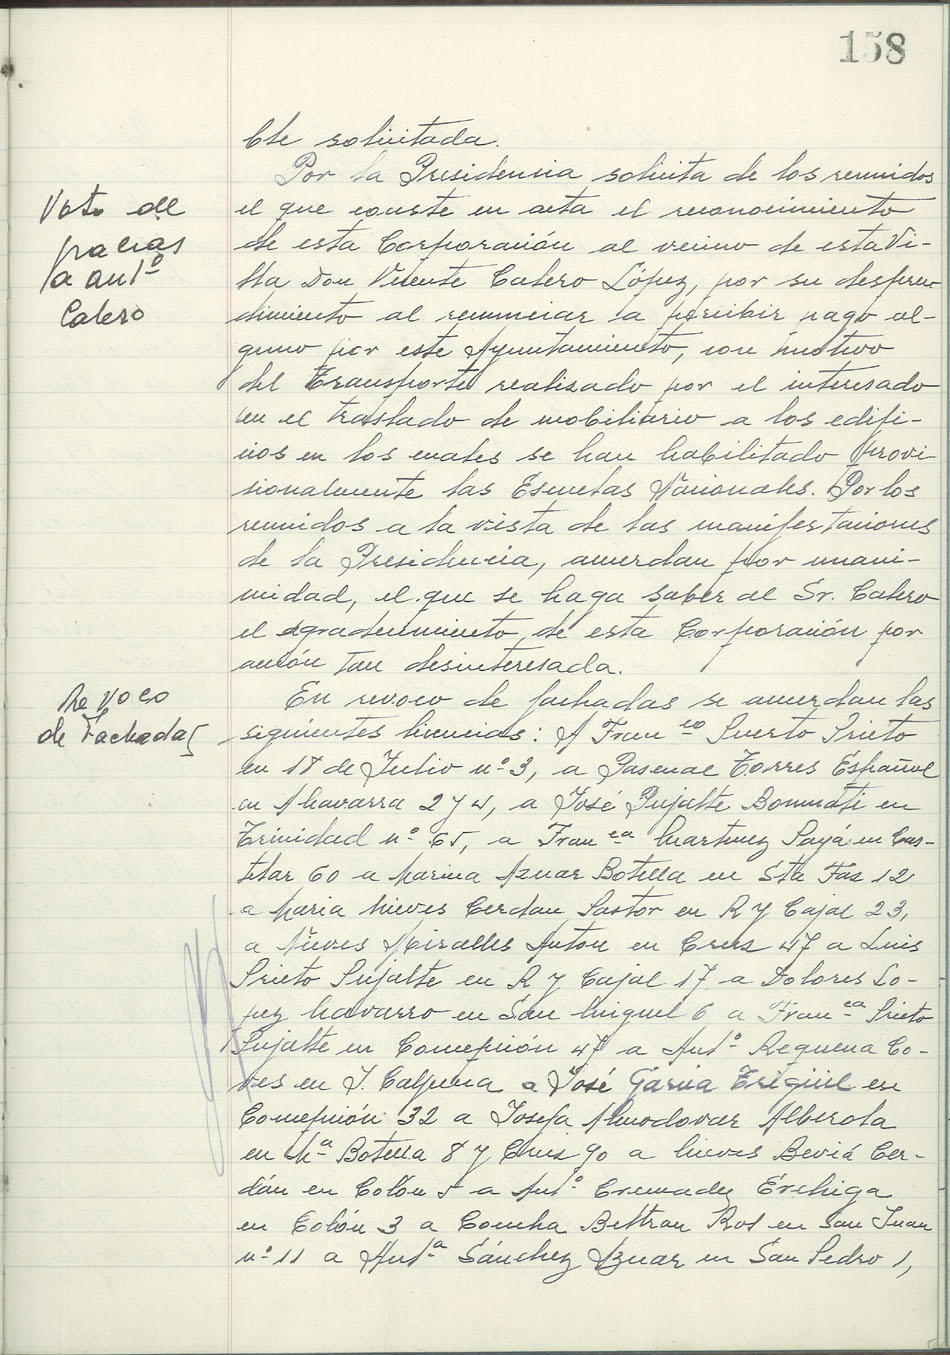 158
ble solicitada.
Por la Presidencia solicita de los reunidos
Voto de
gracias
a Antº
Calero
el que conste en acta el reconocimiento
de esta Corporación al vecino de esta Vi-
lla Don Vicente Calero López, por su despren
dimiento al renunciar la percibir pago al-
guno por este Ayuntamiento, con motivo
del Transporte realizado por el interesado
en el traslado de mobiliario a los edifi-
cios en los cuales se han habilitado provi-
sionalmente las Escuelas Nacionales. Por los
reunidos a la vista de las manifestaciones
de la Presidencia, acuerdan por unani-
midad, el que se haga saber al Sr. Calero
el agradecimiento de esta Corporación por
acción tan desinteresada.
Revoco
de Fachadas
En revoco de fachadas se acuerdan las
siguientes licencias: A Franco Puerto Prieto
en 18 de Julio nº 3, a Pascual Torres Español
en Navarra 2 y 4, a José Pujalte Bonmati en
Trinidad nº 65, a Franca Martinez Payá en Cas-
telar 60 a Marina Aznar Botella en Sta Faz 12
a Maria Nieves Cerdan Pastor en R y Cajal 23,
a Nieves Miralles Anton en Cruz 47 a Luis
Prieto Pujalte en R y Cajal 17 a Dolores Lo-
pez Navarro en San Miguel 6 a Franca Prieto
Pujalte en Concepción 47 a Antº Requena Co-
ves en J. Calpena a José Garcia Erigüil en
Concepción 32 a Josefa Almodovar Alberola
en Mª Botella 8 y Cruz 90 a Nieves Beviá Cer-
dán en Colón 5 a Antº Cremades
en Colón 3 a Concha Beltran Ros en San Juan
nº 11 a Antª Sánchez Aznar en San Pedro 1,